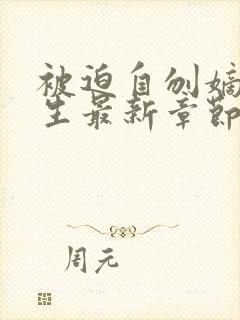 被迫自刎嫡
生最新章節
周元